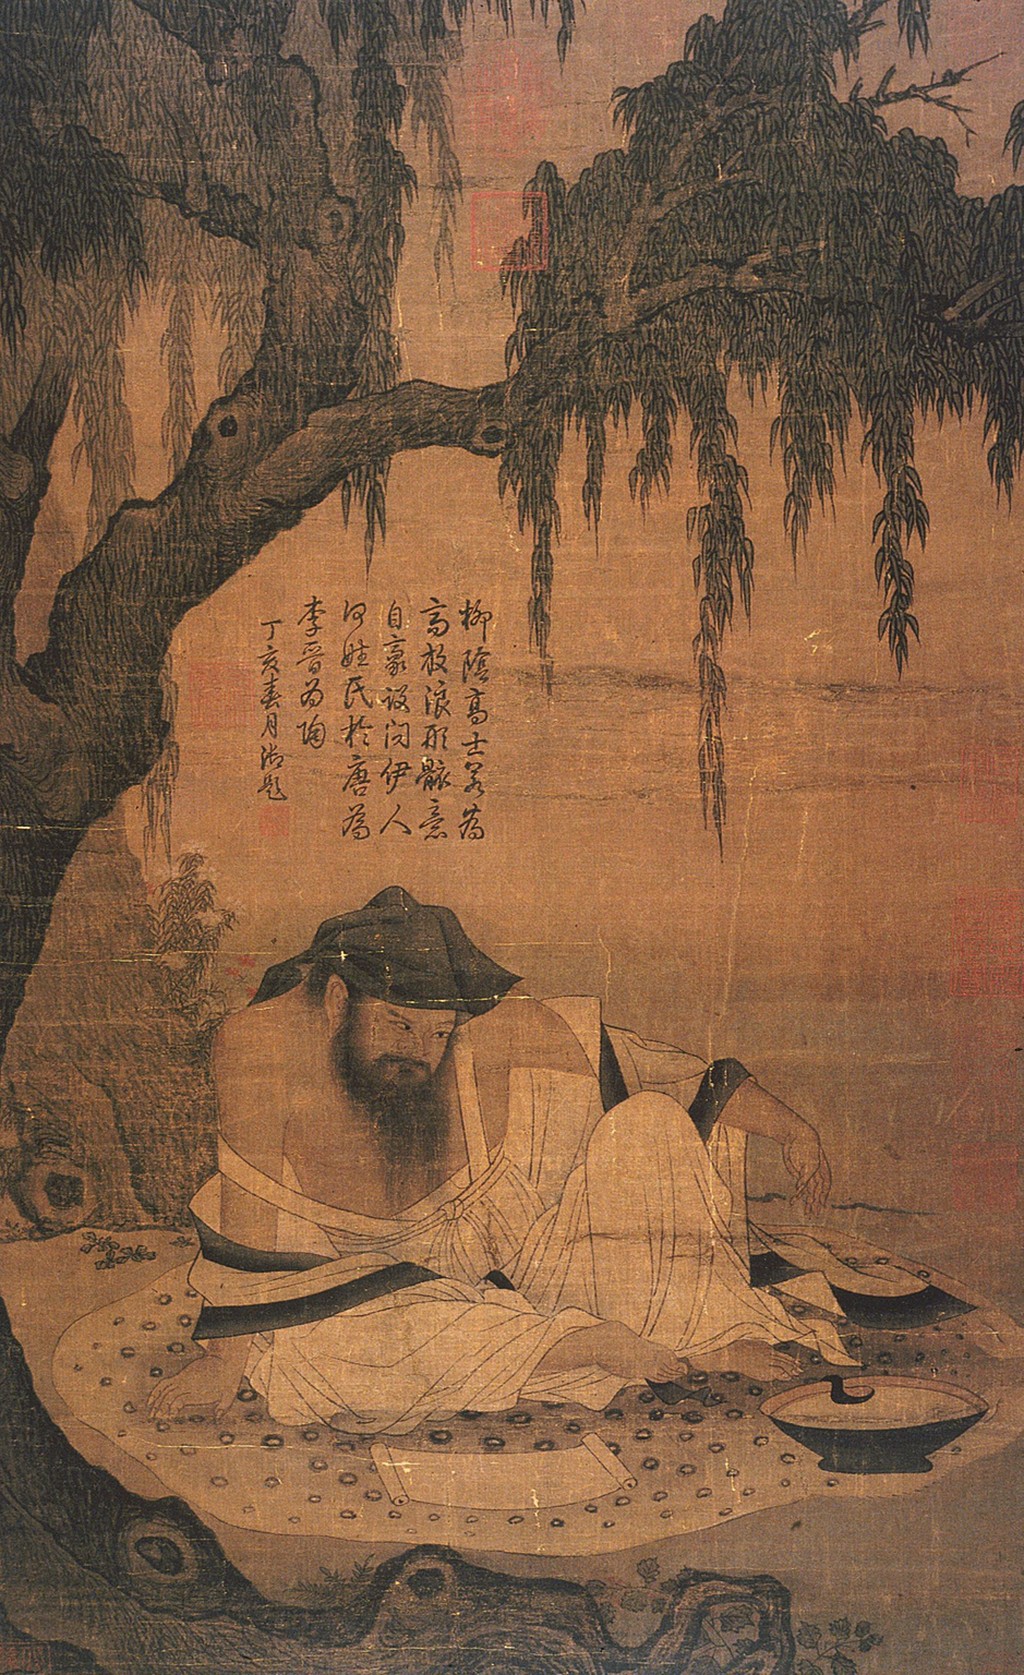 柳陰高士若為
高放浪形骸意
自豪設問伊人
何姓氏於唐為
李晉為陶
丁亥春月御題